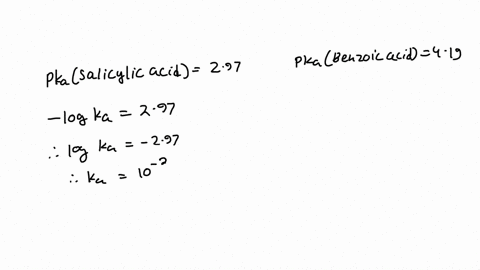 Pka (Salicylic acid) = 2.97
Pka (Benzoic acid) = 4.19
-log ka = 2.97
∴ log ka = -2.97
∴ ka = 10⁻²